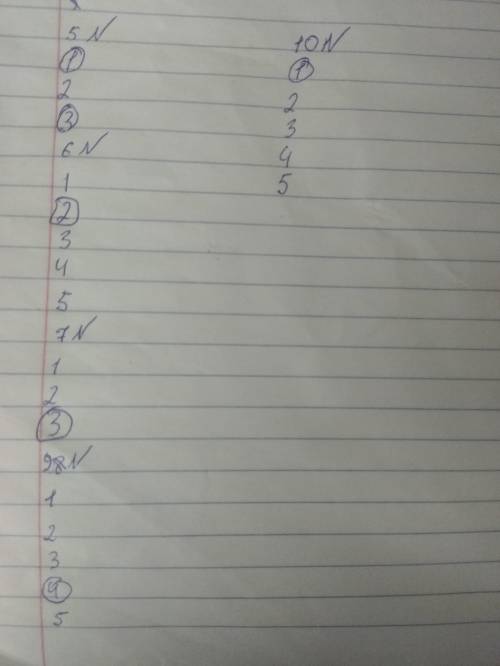 5 N
1
2
3
6 N
1
2
3
4
5
7 N
1
2
3
98 N
1
2
3
9
5
10 N
1
2
3
4
5